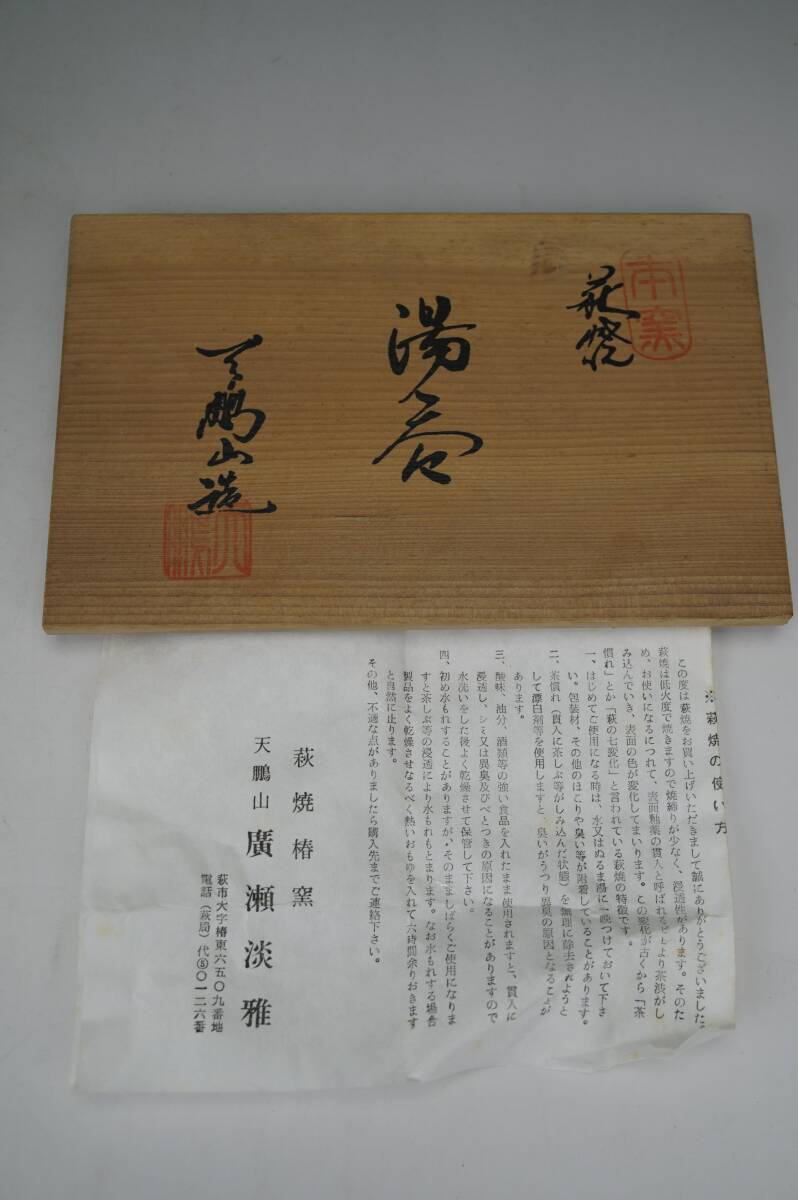 本窯
萩焼
湯呑
天鵬山造
天鵬
※萩焼の使い方
この度は萩焼をお買い上げいただきまして誠にありがとうございました。
萩焼は低火度で焼きますので焼締りが少なく、浸透性があります。そのた
め、お使いになるにつれて、表面釉薬の貫入と呼ばれるヒビより茶渋がし
み込んでいき、表面の色が変化してまいります。この変化が古くから「茶
慣れ」とか「萩の七変化」と言われている萩焼の特徴です。
一、はじめてご使用になる時は、水又はぬるま湯に一晩つけておいて下さ
い。包装材、その他のほこりや臭い等が附着していることがあります。
二、茶慣れ（貫入に茶しぶ等がしみ込んだ状態）を無理に除去されようと
して漂白剤等を使用しますと、臭いがうつり異臭の原因となることが
あります。
三、酸味、油分、酒類等の強い食品を入れたまま使用されますと、貫入に
浸透し、シミ又は異臭及びべとつきの原因になることがありますので
水洗いをした後よく乾燥させて保管して下さい。
四、初め水もれすることがありますが、そのまましばらくご使用になりま
すと茶しぶ等の浸透により水もれもとまります。なお水もれする場合
製品をよく乾燥させなるべく熱いおもゆを入れて六時間余りおきます
と自然に止ります。
その他、不適な点がありましたら購入先までご連絡下さい。
萩焼椿窯
天鵬山 廣瀬淡雅
萩市大字椿東六五〇九番地
電話（萩局）代⑤〇一二六番